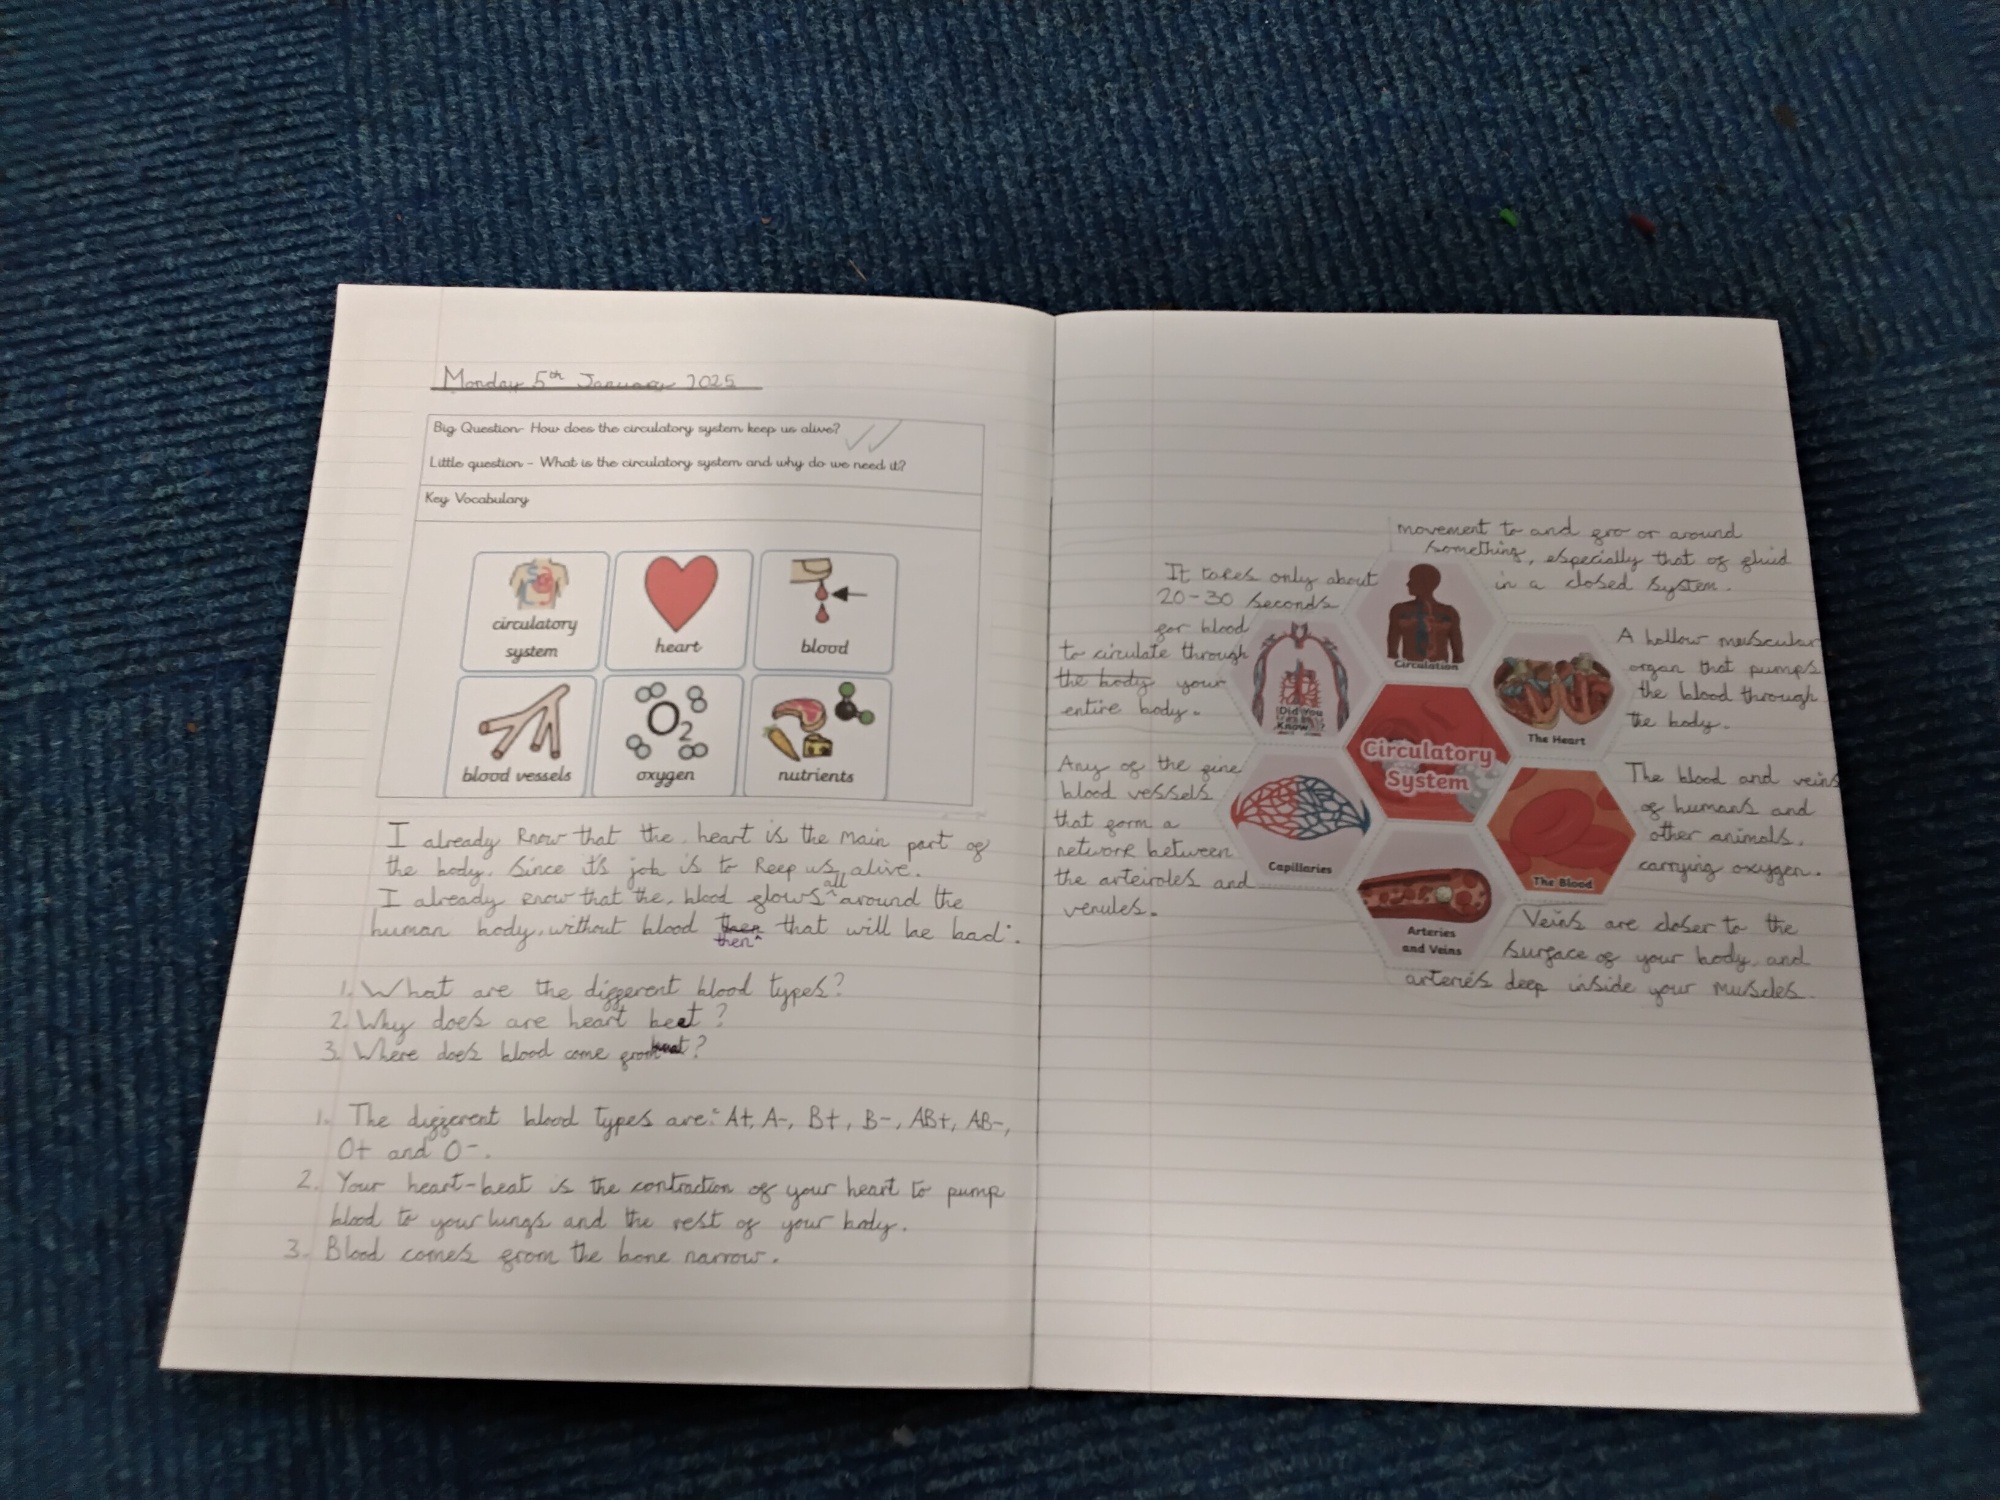 Monday 5th January 2025
Big Question- How does the circulatory system keep us alive?
Little question - What is the circulatory system and why do we need it?
Key Vocabulary
circulatory system
heart
blood
blood vessels
O2
oxygen
nutrients
I already know that the, heart is the main part of
the body. Since it's job is to keep us alive.
I already know that the, blood flows all around the
human body, without blood then that will be bad.
1. What are the different blood types?
2. Why does are heart beat?
3. Where does blood come from?
1. The different blood types are: A+, A-, B+, B-, AB+, AB-,
O+ and O-.
2. Your heart-beat is the contraction of your heart to pump
blood to your lungs and the rest of your body.
3. Blood comes from the bone narrow.
movement to and fro or around
something, especially that of fluid
in a closed system.
Circulation
It takes only about
20-30 seconds
for blood
to circulate through
the body your
entire body.
Did You
Know?
A hollow muscular
organ that pumps
the blood through
the body.
The Heart
Circulatory
System
Any of the fine
blood vessels
that form a
network between
the arteiroles and
venules.
Capillaries
The blood and veins
of humans and
other animals,
carrying oxygen.
The Blood
Arteries
and Veins
Veins are closer to the
surface of your body, and
arteries deep inside your muscles.